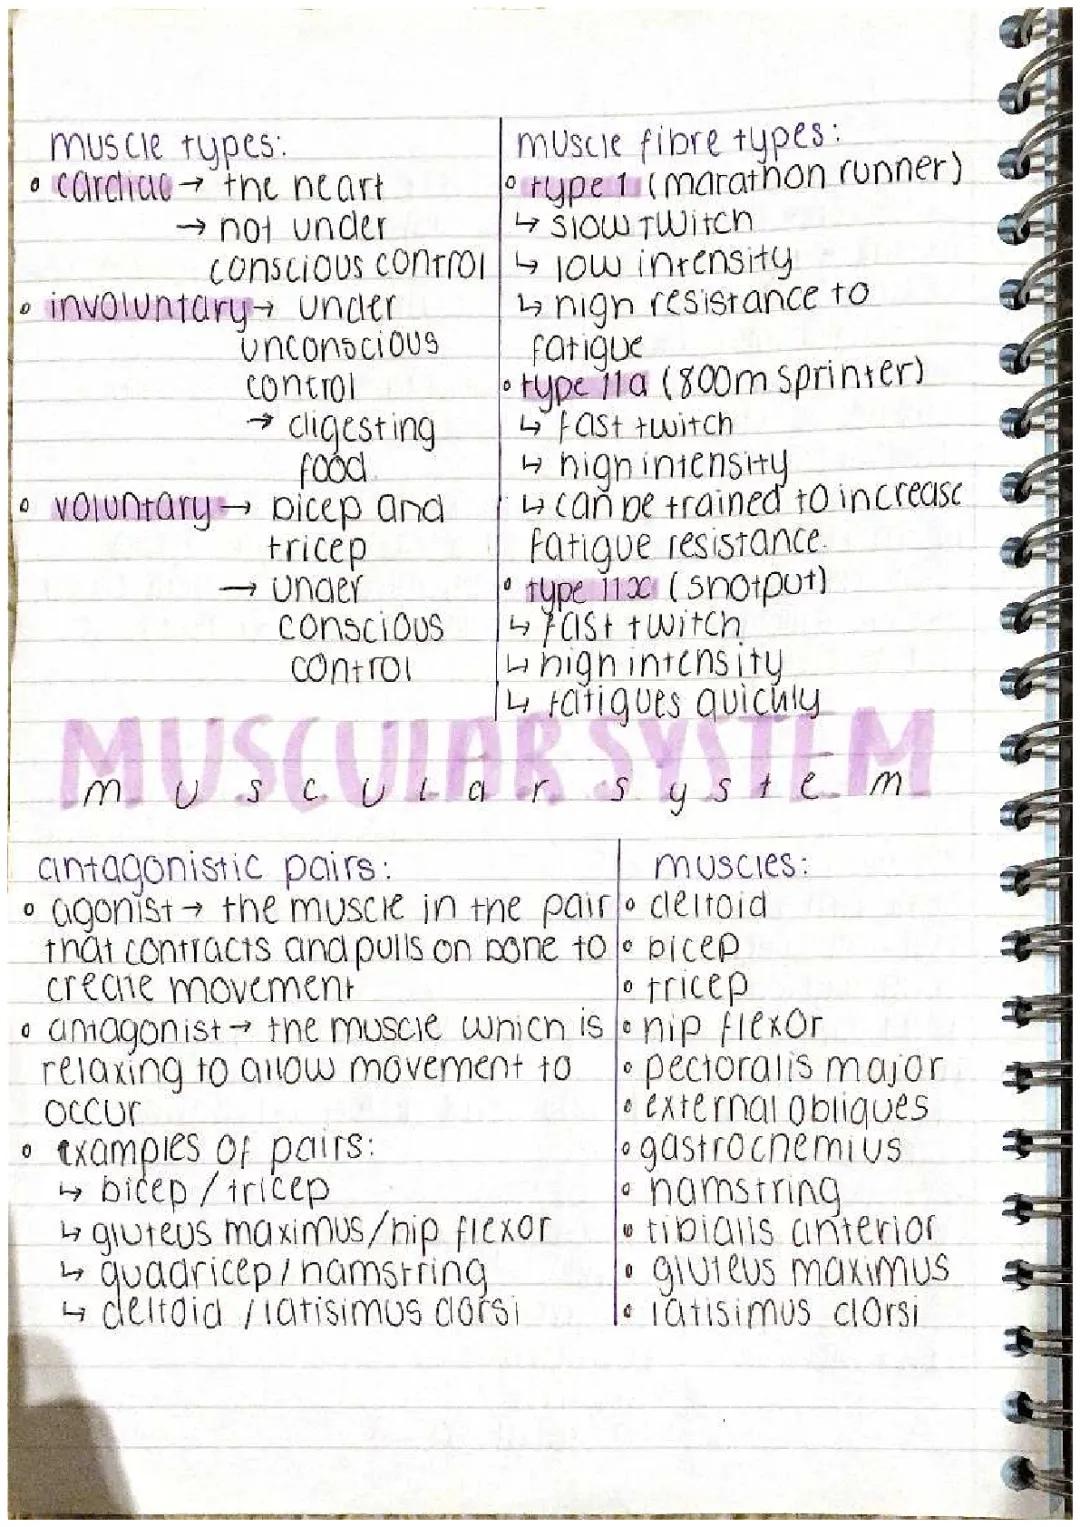 muscle types:
• cardiac → the heart
→ not under
conscious control
• involuntary → under
unconscious
control
→ digesting
food.
• voluntary → bicep and
tricep
→ under
conscious
control
muscle fibre types:
• type 1 (marathon runner)
↳ slow twitch
↳ low intensity
↳ high resistance to
fatigue
• type 11a (800m sprinter)
↳ fast twitch
↳ high intensity
↳ can be trained to increase
fatigue resistance.
• type 11x (shotput)
↳ fast twitch
↳ high intensity
↳ fatigues quickly
MUSCULAR SYSTEM
muscular system
antagonistic pairs:
• agonist → the muscle in the pair
that contracts and pulls on bone to
create movement
• antagonist → the muscle which is
relaxing to allow movement to
occur
• examples of pairs:
↳ bicep / tricep
↳ gluteus maximus/hip flexor
↳ quadricep / hamstring
↳ deltoid / latisimus dorsi
muscles:
• deltoid
• bicep
• tricep
• hip flexor
• pectoralis major
• external obliques
• gastrocnemius
• hamstring
• tibialis anterior
• gluteus maximus
• latisimus dorsi